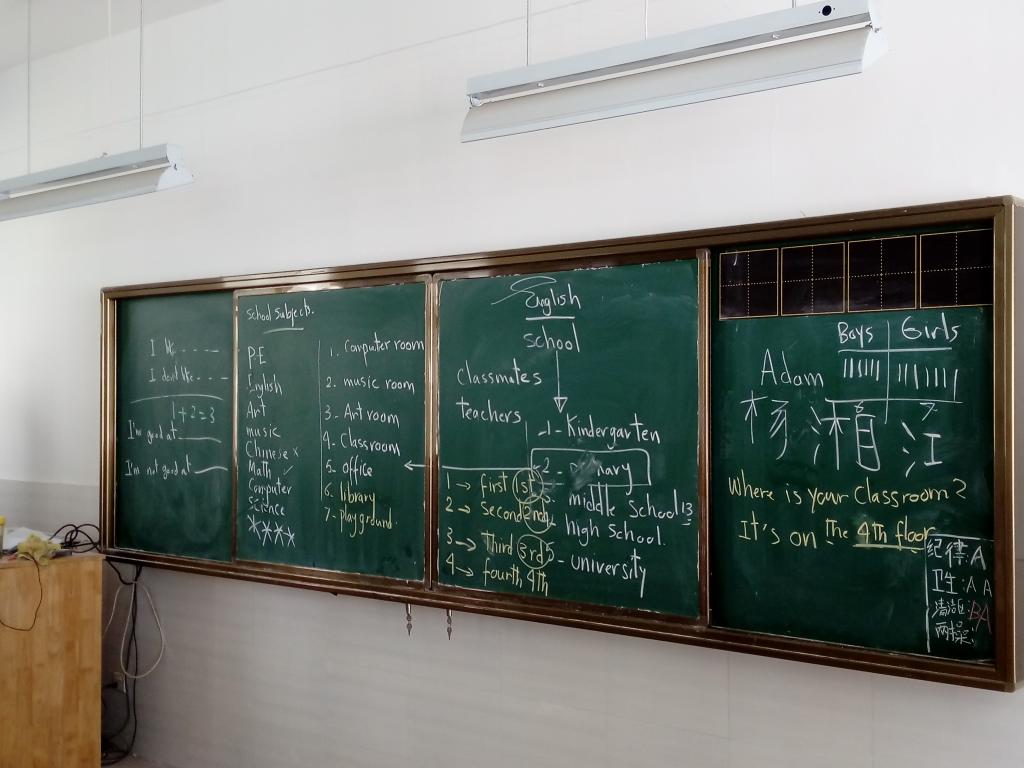 I like ----
I don't like ---
1+2=3
I'm good at
I'm not good at
school subjects.
P.E
English
Art
music
Chinese x
Math ✓
Computer
Science
1. Computer room
2. music room
3- Art room
4- Classroom
5- office
6- library
7- playground.
English
school
Classmates
teachers
1- Kindergarten
2- primary
middle School 13
high school.
5- university
1 → first 1st
2 → Second 2nd
3 → Third 3rd
4 → fourth, 4th
Boys Girls
Adam
杨 湘 江
Where is your Classroom?
It's on the 4th floor
纪律:A
卫生:AA
BA
两操: